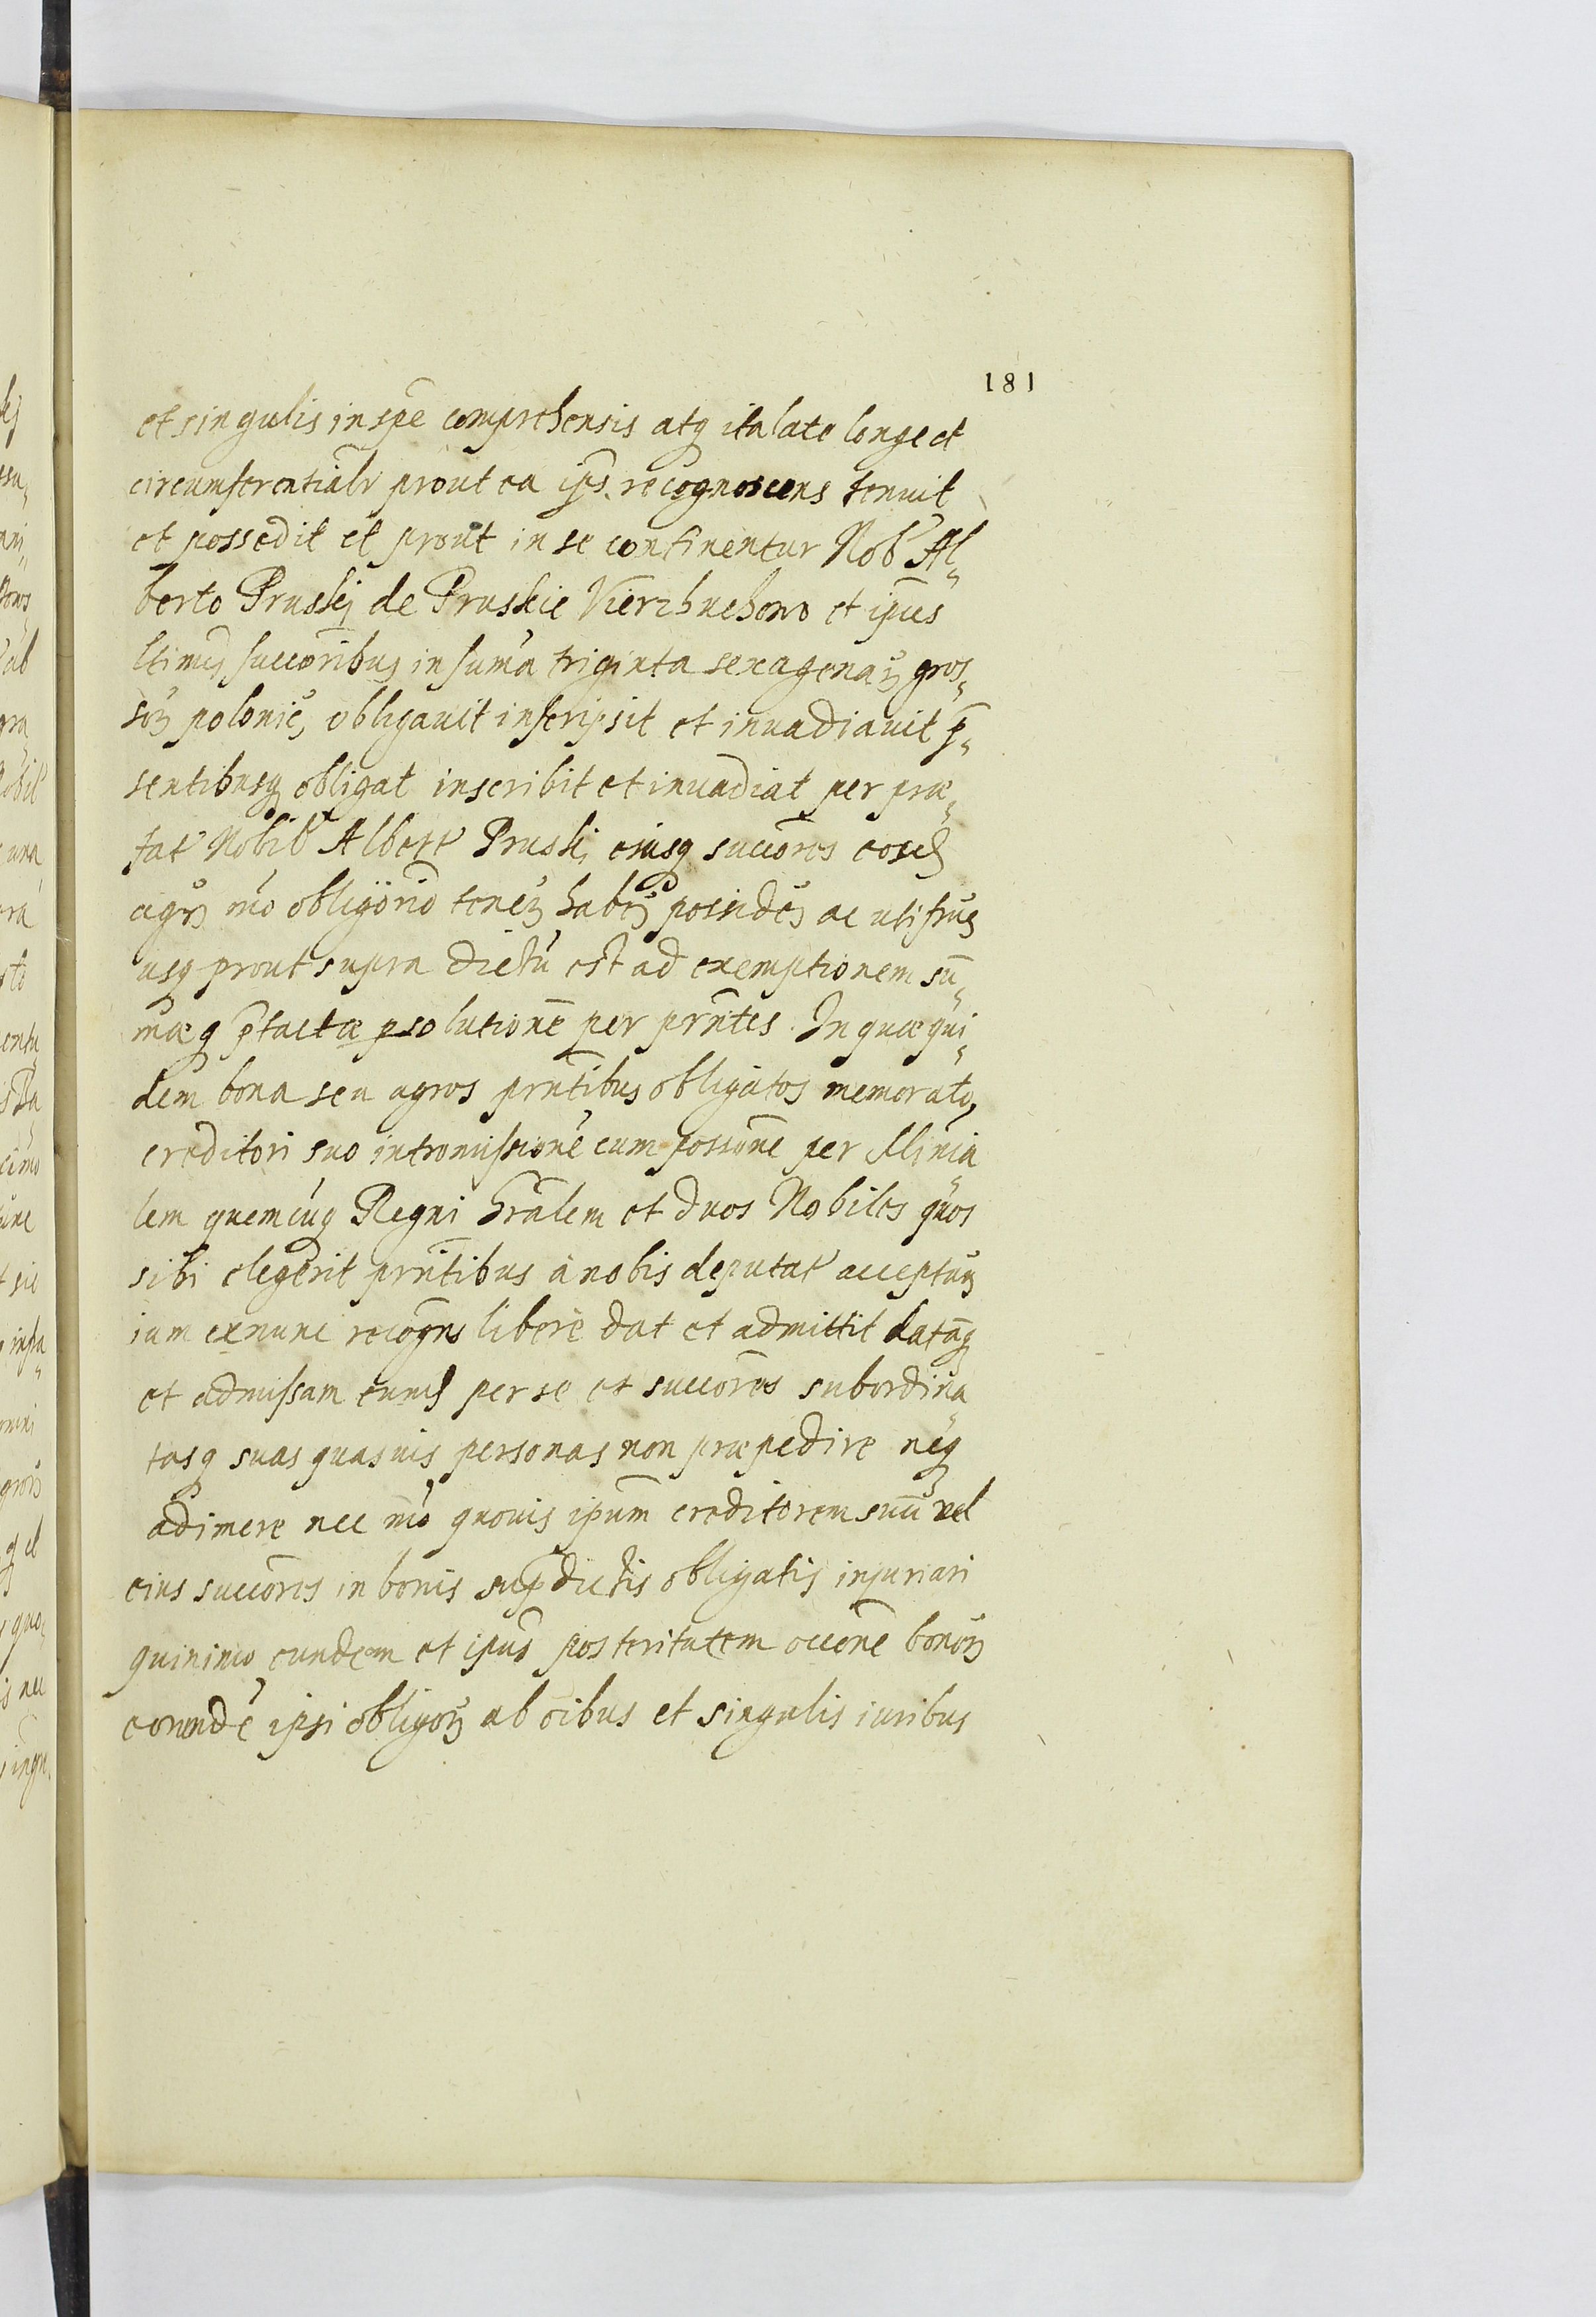 181
et singulis in spe͞ comprehensis atq ita late longe et
circumferentialr prout ea ips. recognoscens tenuit
et possedit et prout in se continentur Nob Al¬
berto Pruskj de Pruskie Vierzbuchowo et ipius
ltimis succoribus in suma triginta sexagenaꝝ gros¬
soꝝ polonic, obligavit inscripsit et invadiavit p¬
sentibusq obligat inscribit et invadiat per præ¬
fat Nobil Albert Pruski eiusq succores eosd
agros mo obligorio teneꝝ habeꝝ possideꝝ ac utifrueꝝ
usq prout supra dictu est ad exemptionem su¬
mæq ptactæ psolutione per prntes. In quæ qui¬
dem bona seu agros prntibus obligatos memorato
creditori suo intromissione cum possione per Minia¬
lem quemcuq Regni Gralem et duos Nobiles quos
sibi elegerit prntibus a nobis deputat acceptuꝝ
iam exnunc recogns libere dat et admittit datāq
et admissam eund per se et succores subordina¬
tasq suas quasvis personas non præpedire neq
adimere nec mo quovis ipum creditorem suū vel
eius succores in bonis supdictis obligatis injuriari
quinimo eundem et ipius posteritatem occone bonoꝝ
eorunde ipsi obligoꝝ ab oibus et singulis iuribus